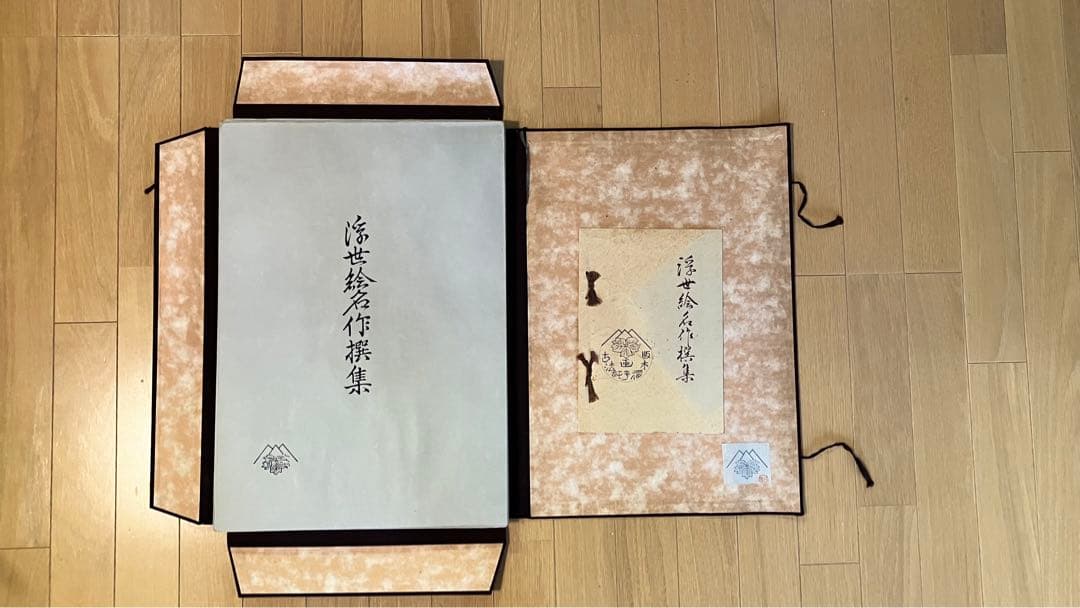 浮世絵名作撰集
浮世絵名作撰集